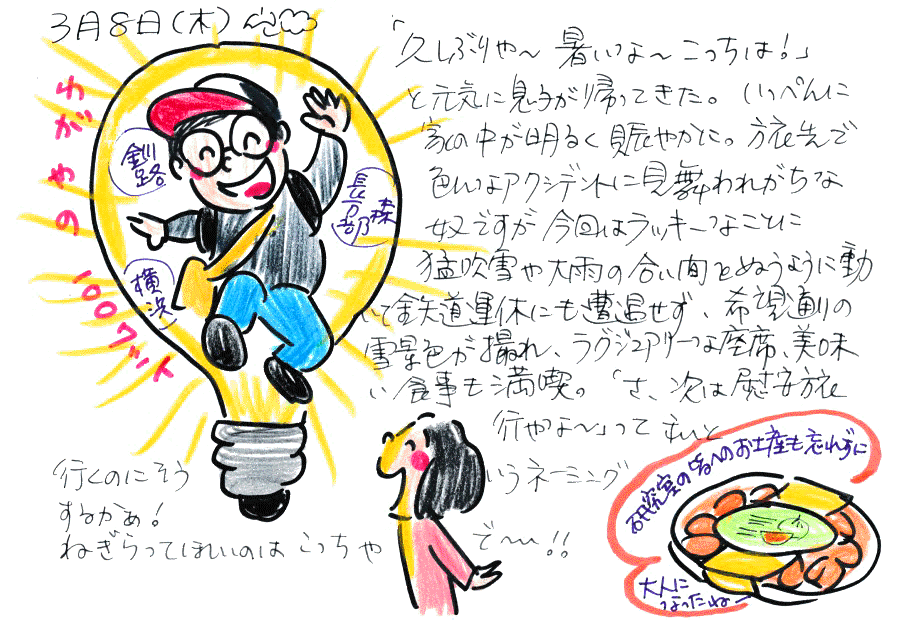 3月8日(木)
わがやの
100ワット
釧路
長万部
森
横浜
「久しぶりや〜 暑いな〜 こっちは!」
と元気に息子が帰ってきた。いっぺんに
家の中が明るく賑やかに。旅先で
色んなアクシデントに見舞われがちな
奴ですが今回はラッキーなことに
猛吹雪や大雨の合い間をぬうように動
いて鉄道運休にも遭遇せず、希望通りの
雪景色が撮れ、ラグジュアリーな座席、美味
い食事も満喫。「さ、次は慰安旅
行やな〜」って
行くのにそう いうネーミング
するかぁ!
ねぎらってほしいのは こっちや ぞ〜!!
研究室の皆へのお土産も忘れずに
大人に
なったね